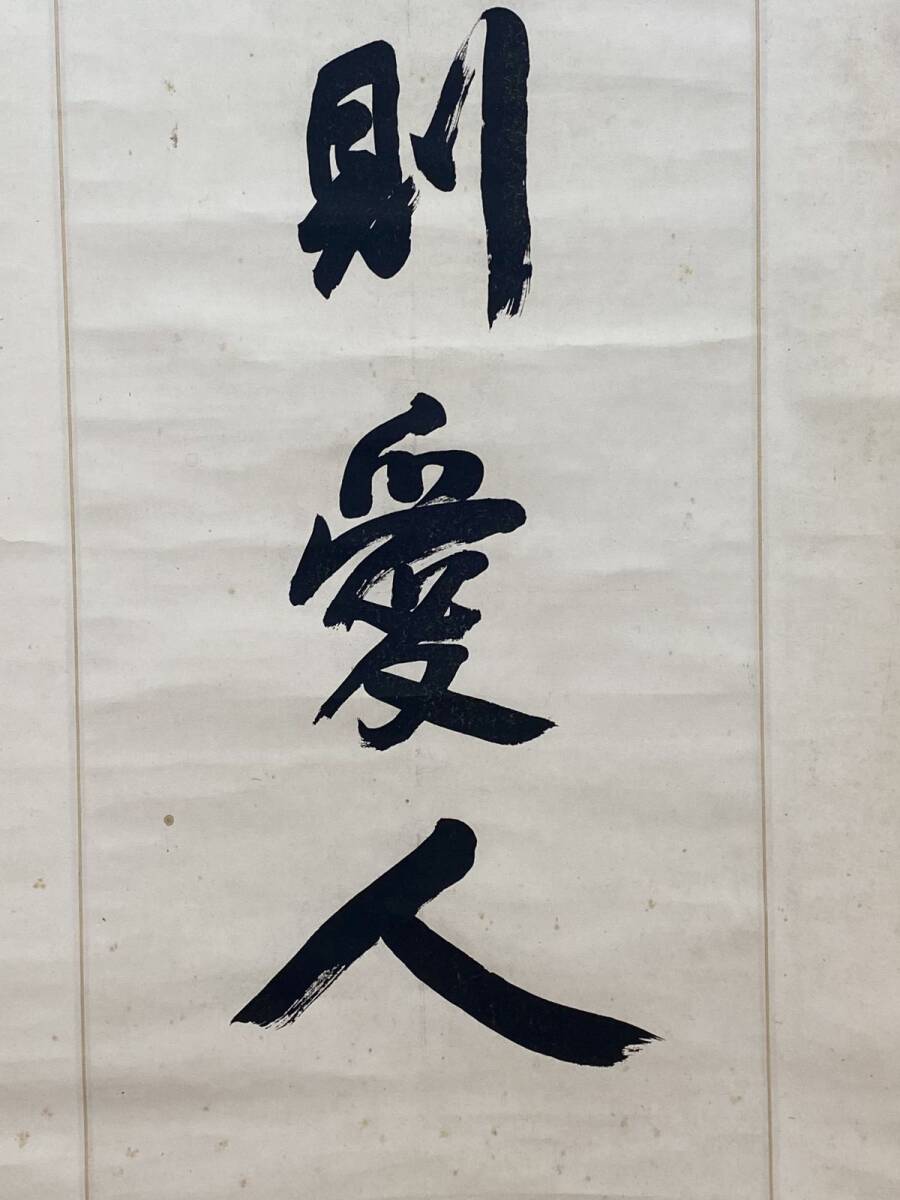 則愛人